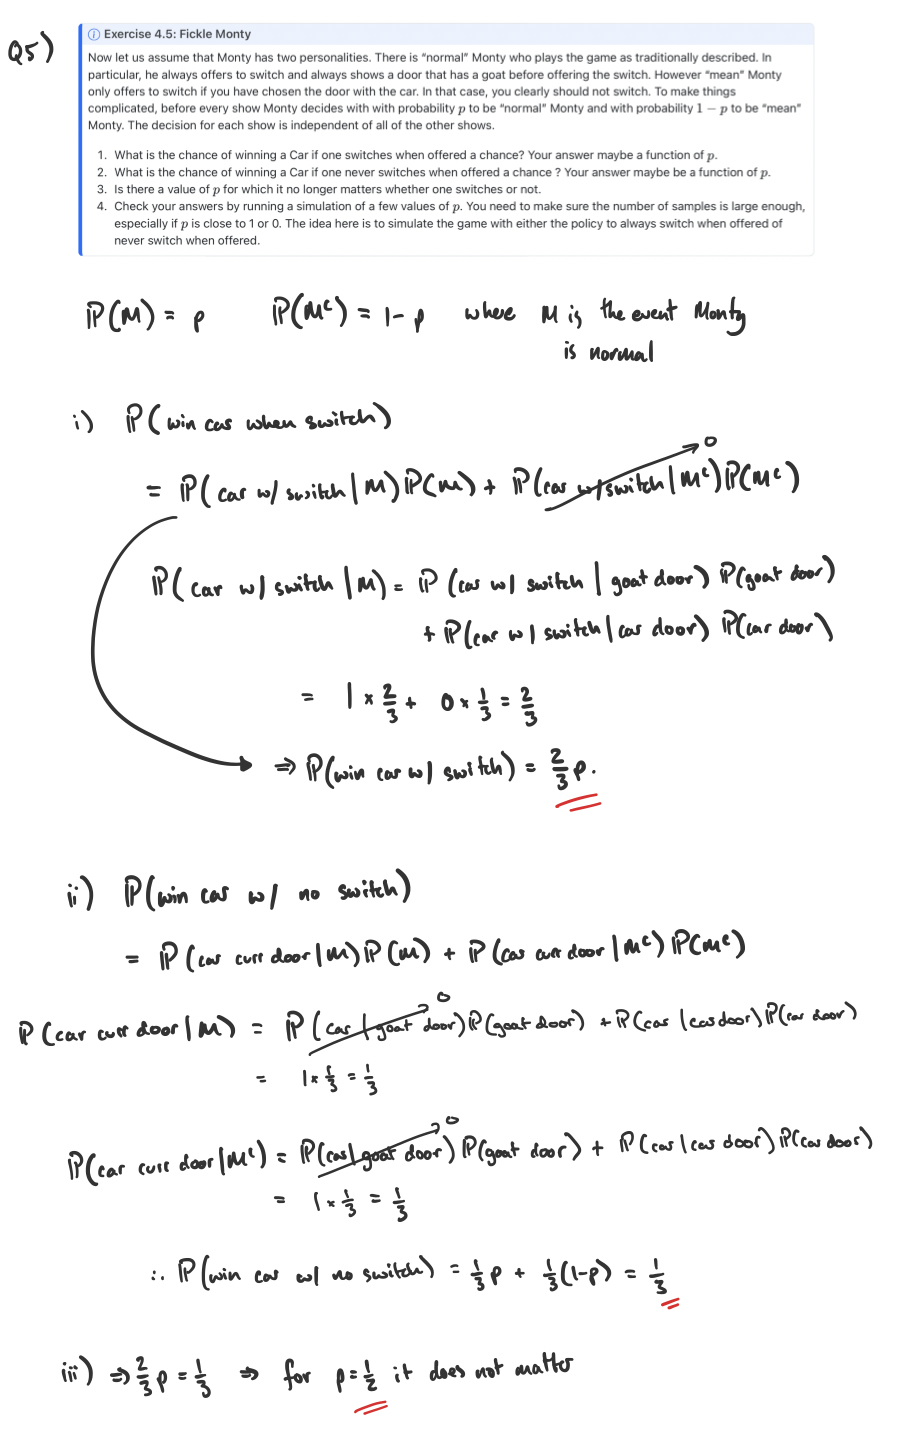 Q5)
Exercise 4.5: Fickle Monty
Now let us assume that Monty has two personalities. There is “normal” Monty who plays the game as traditionally described. In
particular, he always offers to switch and always shows a door that has a goat before offering the switch. However “mean” Monty
only offers to switch if you have chosen the door with the car. In that case, you clearly should not switch. To make things
complicated, before every show Monty decides with with probability p to be “normal” Monty and with probability 1 − p to be “mean”
Monty. The decision for each show is independent of all of the other shows.
1. What is the chance of winning a Car if one switches when offered a chance? Your answer maybe a function of p.
2. What is the chance of winning a Car if one never switches when offered a chance ? Your answer maybe be a function of p.
3. Is there a value of p for which it no longer matters whether one switches or not.
4. Check your answers by running a simulation of a few values of p. You need to make sure the number of samples is large enough,
especially if p is close to 1 or 0. The idea here is to simulate the game with either the policy to always switch when offered of
never switch when offered.
ℙ(M) = p ℙ(Mᶜ) = 1 - p where M is the event Monty
is normal
i) ℙ(win car when switch)
= ℙ(car w/ switch | M) ℙ(M) + ℙ(car w/ switch | Mᶜ) ℙ(Mᶜ) → 0
ℙ(car w/ switch | M) = ℙ(car w/ switch | goat door) ℙ(goat door)
+ ℙ(car w/ switch | car door) ℙ(car door)
= 1 × 2/3 + 0 × 1/3 = 2/3
⇒ ℙ(win car w/ switch) = 2/3 p.
ii) ℙ(win car w/ no switch)
= ℙ(car curr door | M) ℙ(M) + ℙ(car curr door | Mᶜ) ℙ(Mᶜ)
ℙ(car curr door | M) = ℙ(car | goat door) ℙ(goat door) + ℙ(car | car door) ℙ(car door) → 0
= 1 × 1/3 = 1/3
ℙ(car curr door | Mᶜ) = ℙ(car | goat door) ℙ(goat door) + ℙ(car | car door) ℙ(car door) → 0
= 1 × 1/3 = 1/3
∴ ℙ(win car w/ no switch) = 1/3 p + 1/3 (1-p) = 1/3
iii) ⇒ 2/3 p = 1/3 ⇒ for p = 1/2 it does not matter